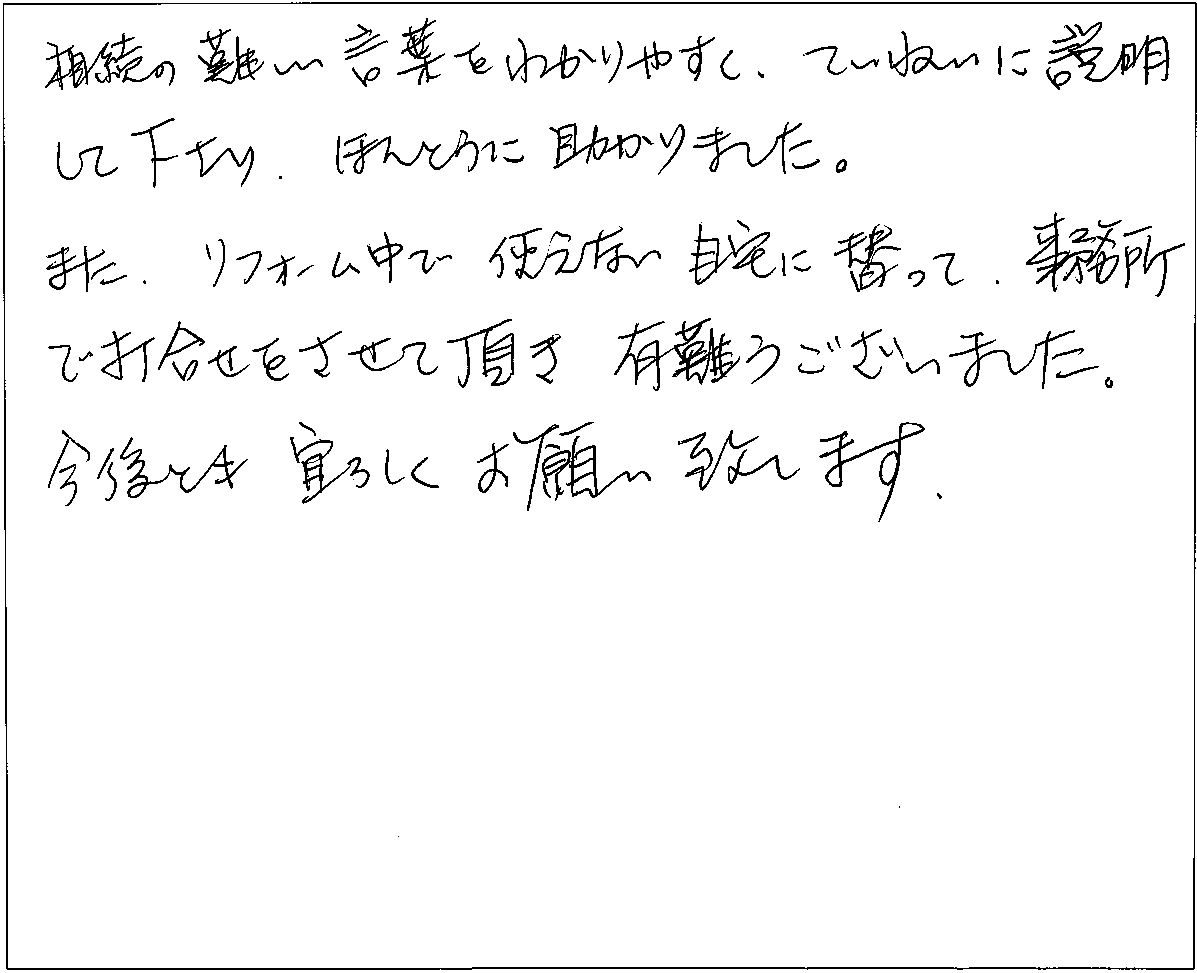 相続の難しい言葉をわかりやすく、ていねいに説明
して下さり、ほんとうに助かりました。
また、リフォーム中で使えない自宅に替って、事務所
で打合せをさせて頂き有難うございました。
今後とも宜ろしくお願い致します、